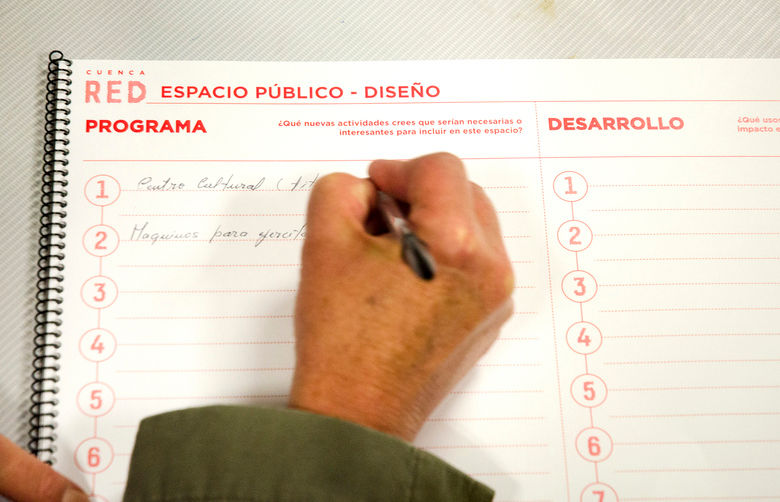 CUENCA
RED ESPACIO PÚBLICO - DISEÑO
PROGRAMA
¿Qué nuevas actividades crees que serían necesarias o
interesantes para incluir en este espacio?
1 Centro Cultural (tit
2 Maquinas para ejercita
3
4
5
6
DESARROLLO
¿Qué usos
impacto e
1
2
3
4
5
6
7